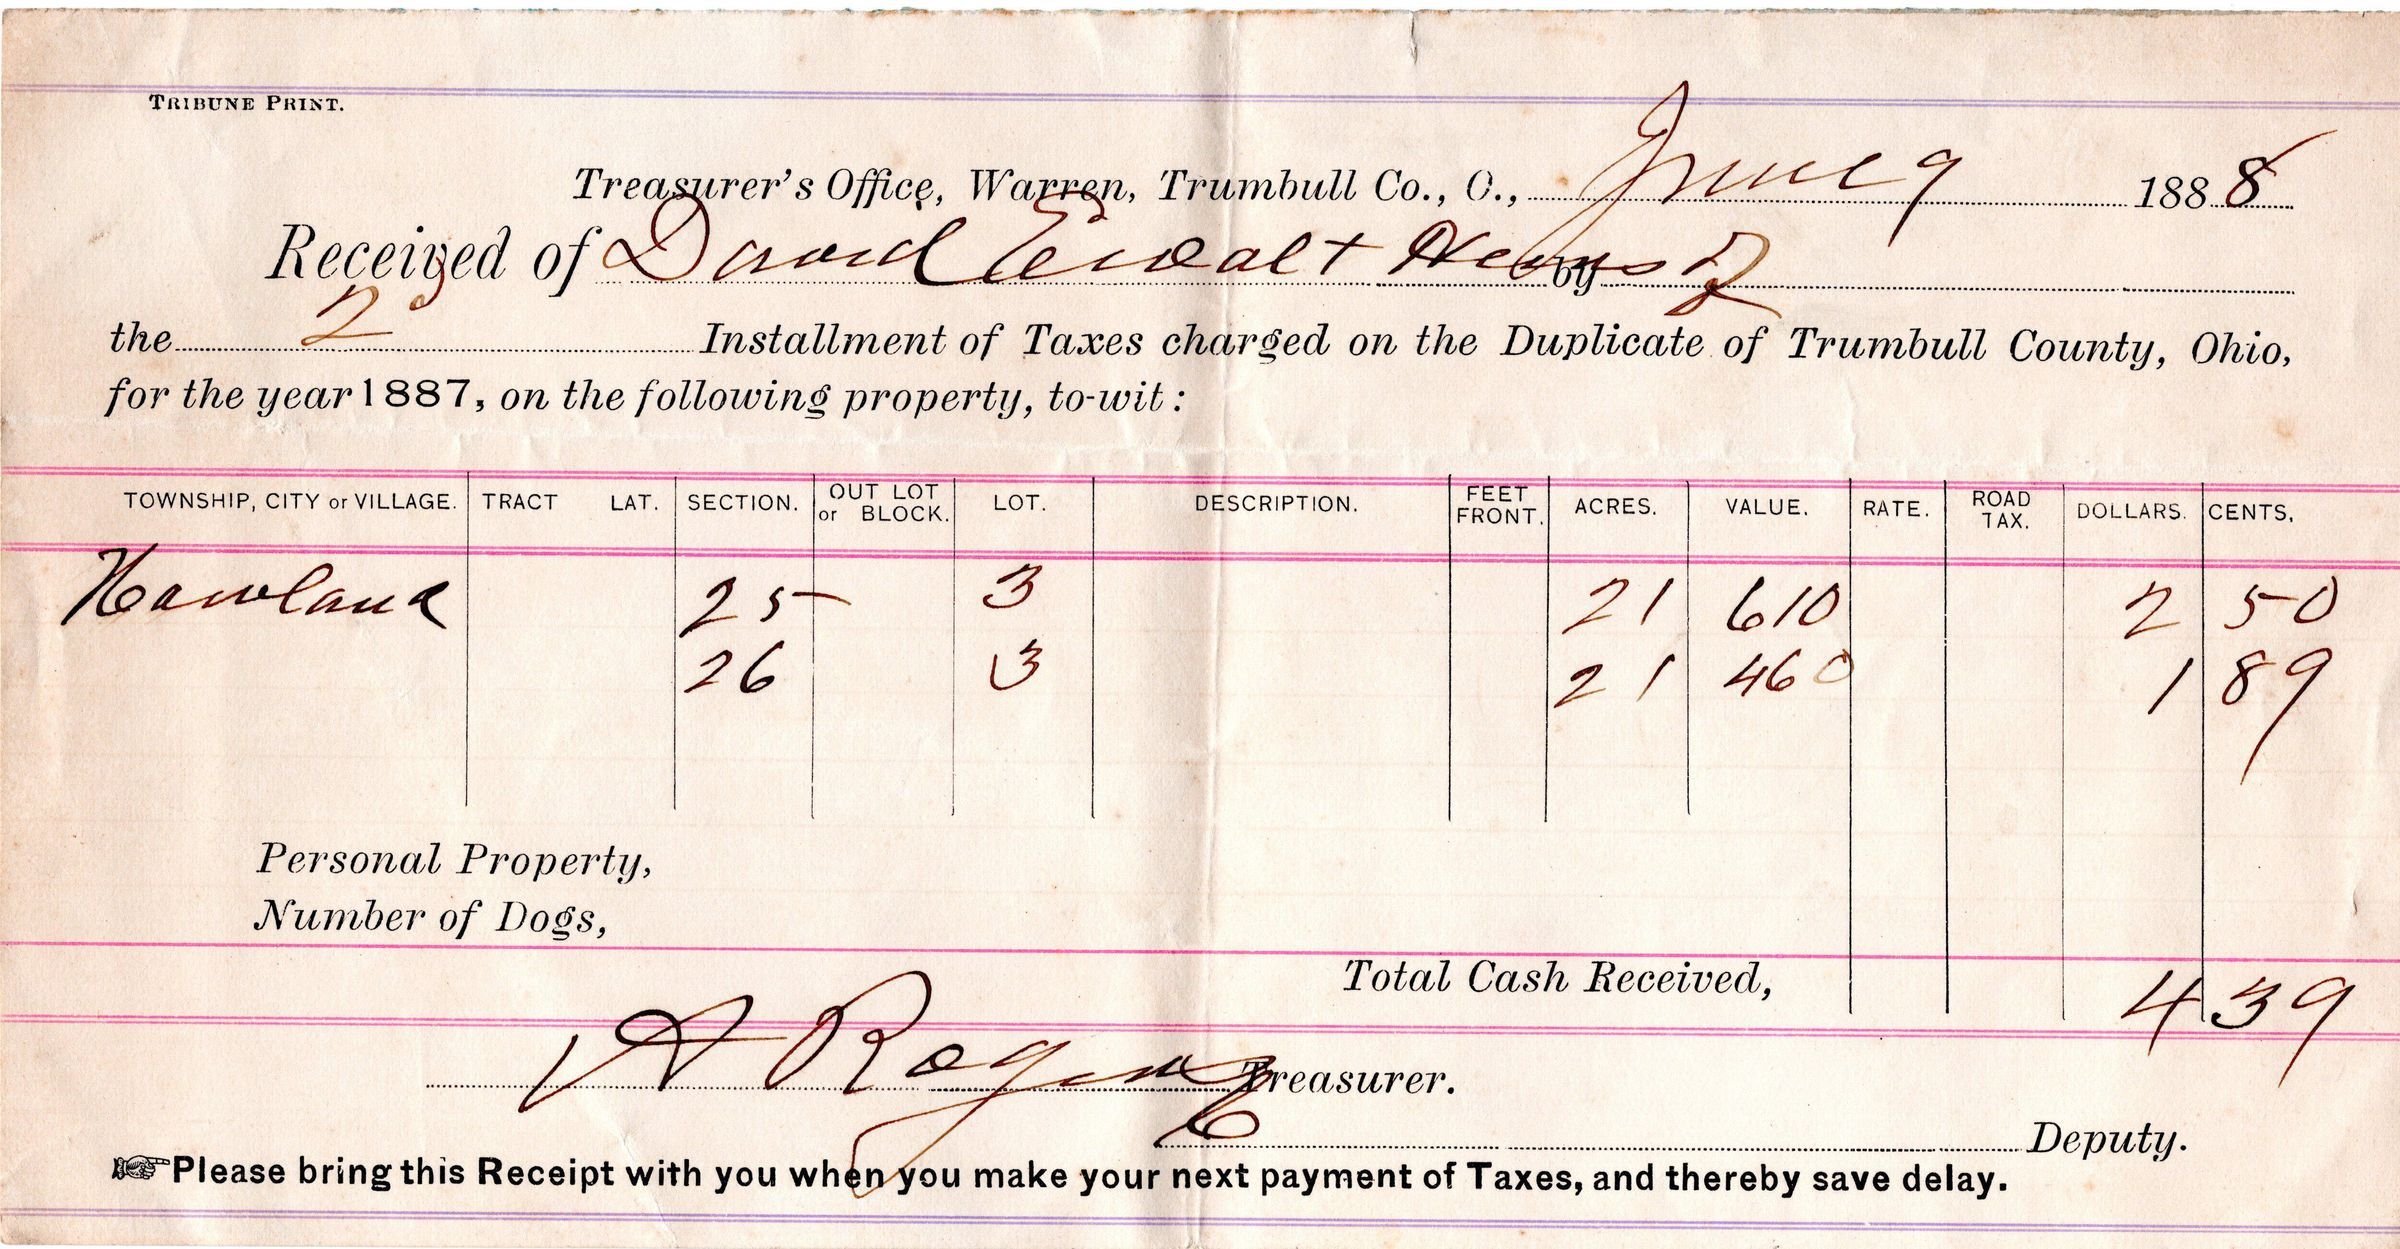 TRIBUNE PRINT.
Treasurer's Office, Warren, Trumbull Co., O., June 9 1888
Received of David Ewalt Heirs by
the 2 Installment of Taxes charged on the Duplicate of Trumbull County, Ohio,
for the year 1887, on the following property, to-wit:
TOWNSHIP, CITY or VILLAGE. TRACT LAT. SECTION. OUT LOT or BLOCK. LOT. DESCRIPTION. FEET FRONT. ACRES. VALUE. RATE. ROAD TAX. DOLLARS. CENTS.
Howland 25 3 21 610 2 50
26 3 21 460 1 89
Personal Property,
Number of Dogs,
Total Cash Received, 4 39
A Rogers Treasurer.
Deputy.
Please bring this Receipt with you when you make your next payment of Taxes, and thereby save delay.